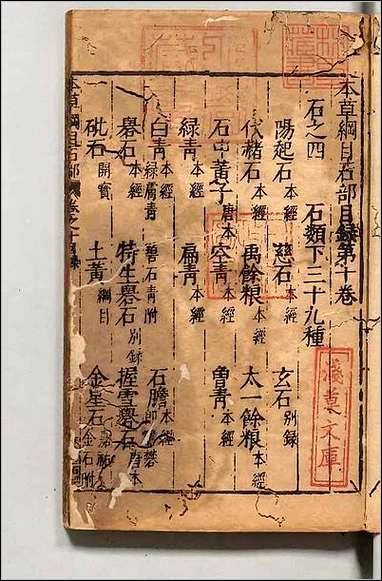 本草綱目石部目錄第十卷
石之四 石類下三十九種
陽起石本經 慈石本經 玄石別錄
代赭石本經 禹餘糧本經 太一餘糧本經
石中黃子唐本 空青本經 曾青本經
綠青本經 扁青本經 石膽本經即膽礬
白青本經綠膚青 碧石青附
礜石本經 特生礜石別錄 握雪礜石唐本
砒石開寶 土黃綱目 金星石嘉祐金石附
本草綱目石部
淺草文庫